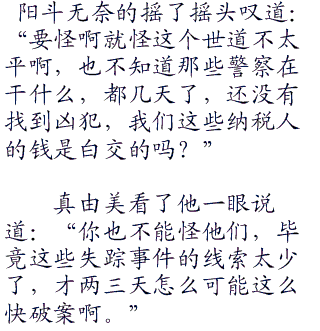 阳斗无奈的摇了摇头叹道：
“要怪啊就怪这个世道不太
平啊，也不知道那些警察在
干什么，都几天了，还没有
找到凶犯，我们这些纳税人
的钱是白交的吗？”
真由美看了他一眼说
道：“你也不能怪他们，毕
竟这些失踪事件的线索太少
了，才两三天怎么可能这么
快破案啊。”